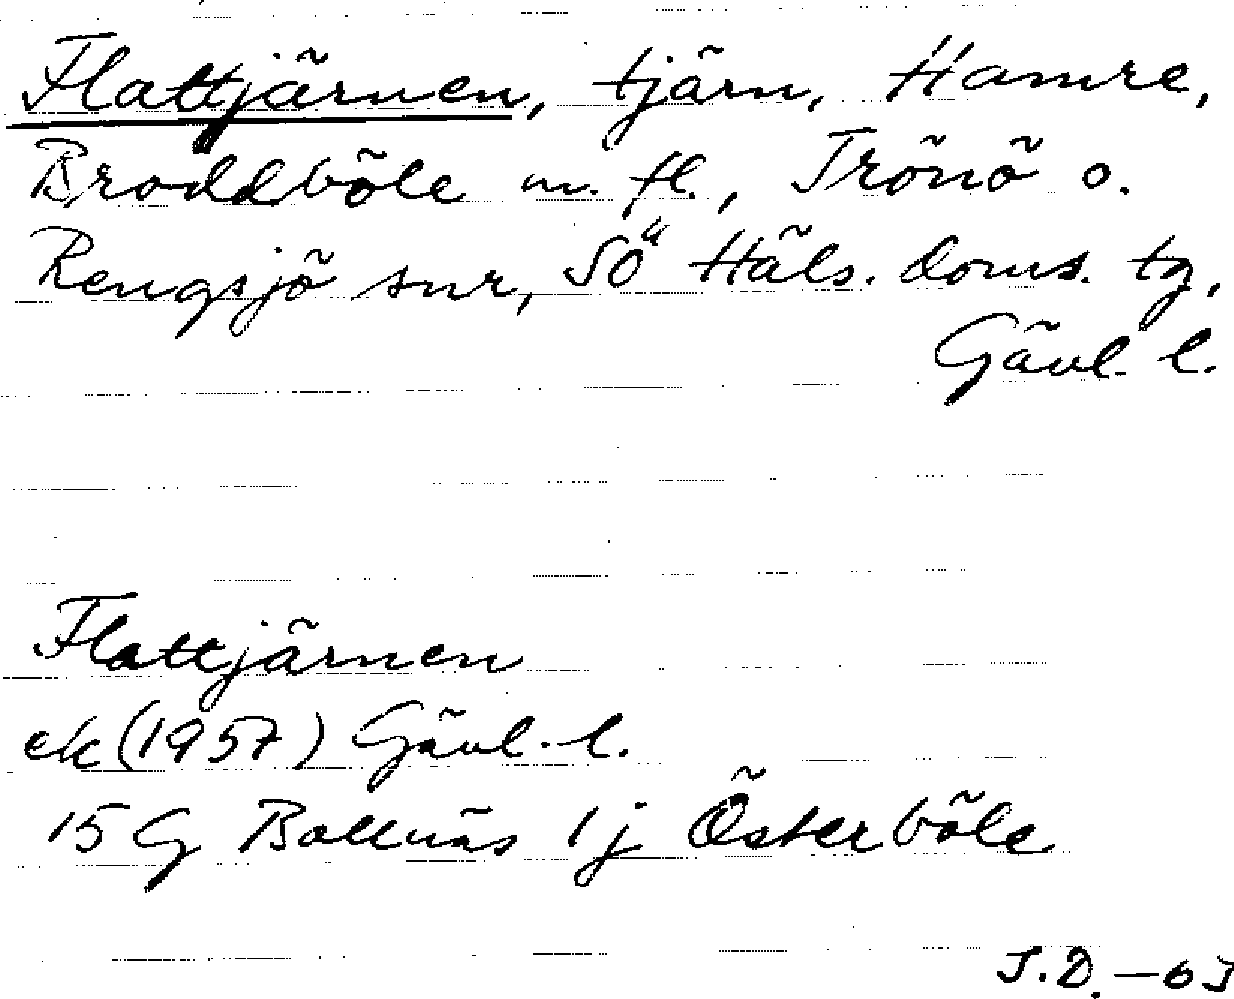 Flattjärnen, tjärn, Hamre,
Broddböle m. fl., Trönö o.
Rengsjö snr, SÖ Häls. doms. tg,
Gävl. l.
Flattjärnen
ek (1957) Gävl. l.
15 G Bollnäs 1 j Österböle
J.D. - 63